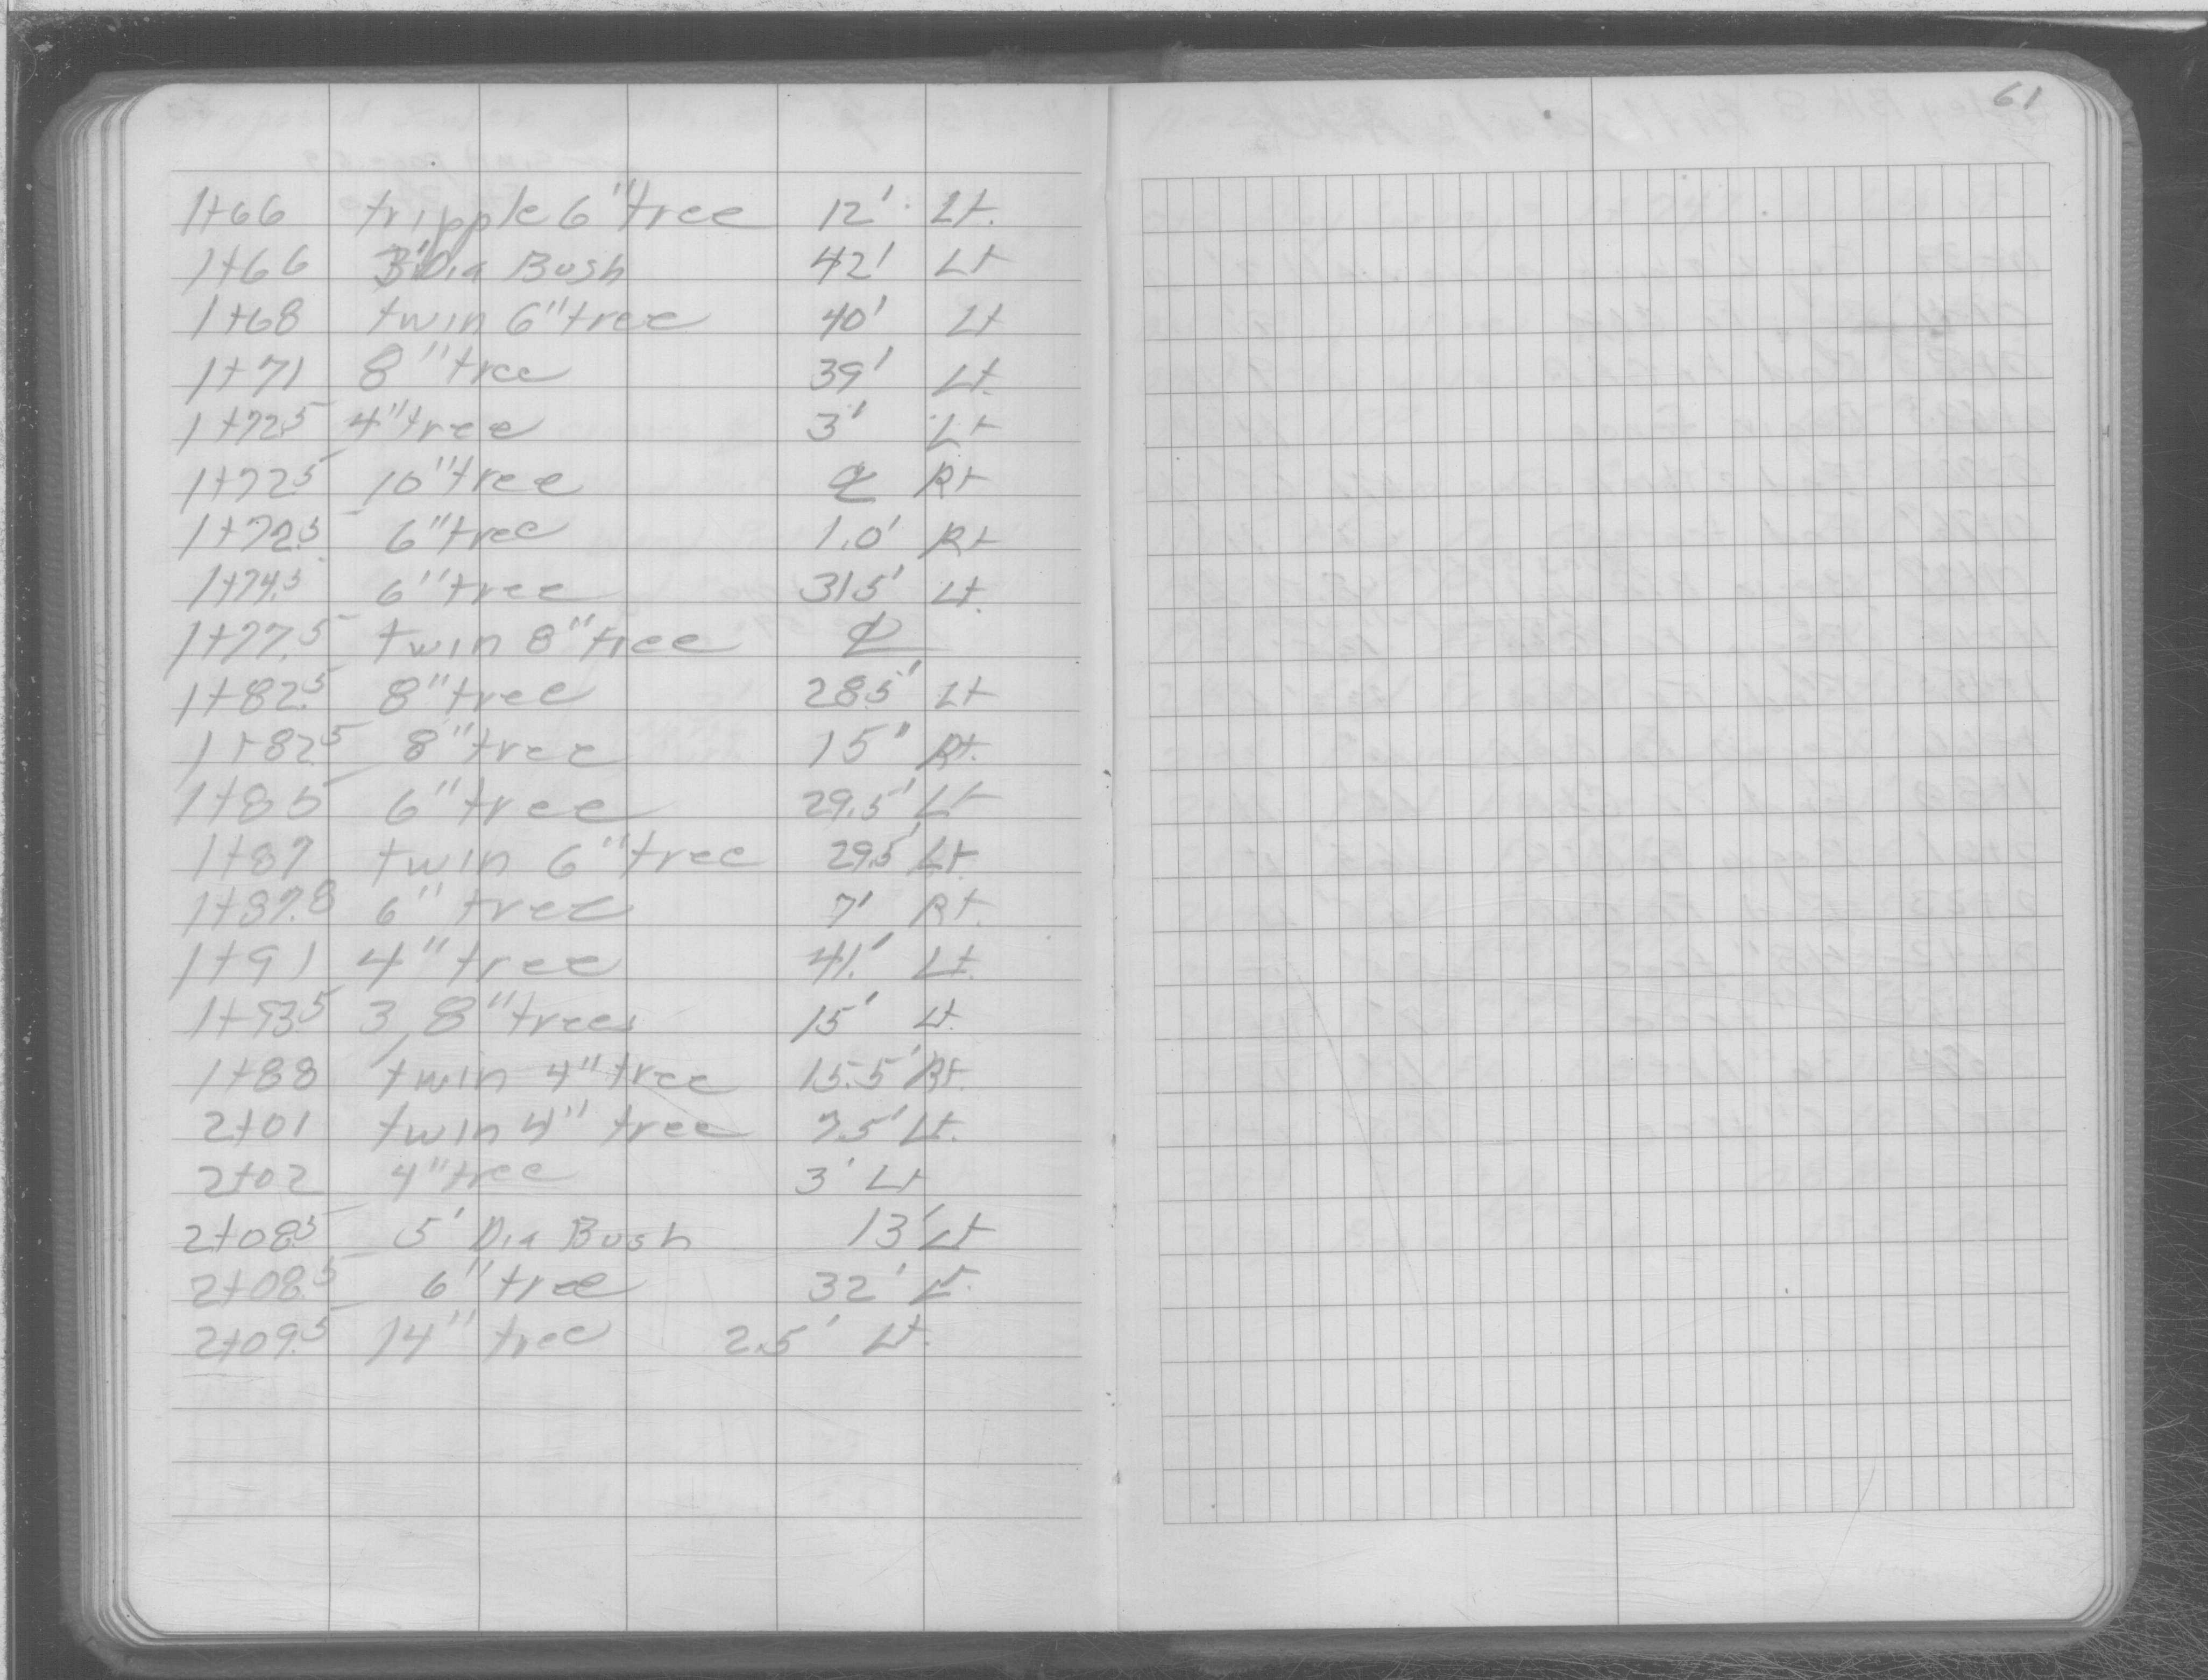 61
1+66 tripple 6" tree 12' Lt.
1+66 3' Dia Bush 42' Lt
1+68 twin 6" tree 40' Lt
1+71 8" tree 39' Lt.
1+72.5 4" tree 3' Lt
1+72.5 10" tree ℄ Rt
1+72.5 6" tree 1.0' Rt
1+74.5 6" tree 31.5' Lt.
1+77.5 twin 8" tree ℄
1+82.5 8" tree 28.5' Lt
1+82.5 8" tree 15" Rt.
1+85 6" tree 29.5' Lt
1+87 twin 6" tree 29.5' Lt.
1+87.8 6" tree 7' Rt.
1+91 4" tree 41.' Lt.
1+93.5 3, 8" trees 15' Lt.
1+88 twin 4" tree 15.5' Rt.
2+01 twin 4" tree 7.5' Lt.
2+02 4" tree 3' Lt
2+08.5 5' Dia Bush 13' Lt
2+08.5 6" tree 32' Lt.
2+09.5 14" tree 2.5' Lt.